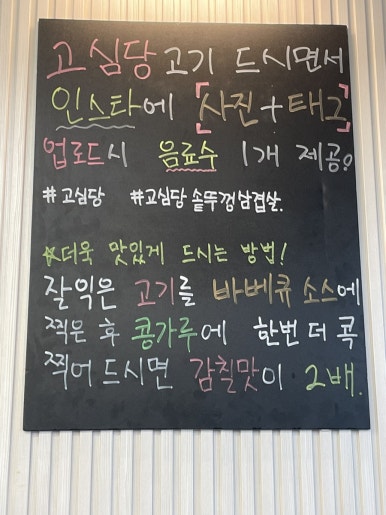 고심당 고기 드시면서
인스타에 [사진+태그]
업로드시 음료수 1개 제공o
#고심당 #고심당 솥뚜껑삼겹살.
☆더욱 맛있게 드시는 방법!
잘익은 고기를 바베큐 소스에
찍은 후 콩가루에 한번 더 콕
찍어 드시면 감칠맛이 2배.